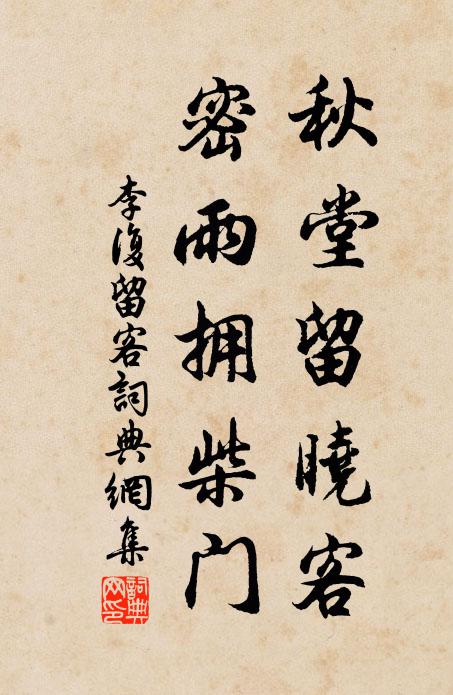 秋堂留曉客
密雨拥柴门
李復留客詞典網集
詞典网印